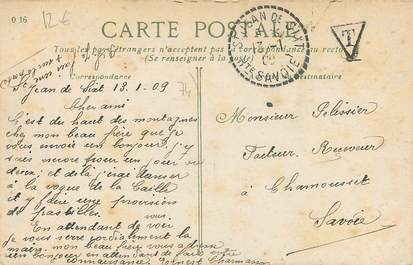 O 16
12€
CARTE POSTALE
Tous les pays étrangers n'acceptent pas la Correspondance au recto
(Se renseigner à la poste)
Correspondance
Destinataire
JEAN DE SIXT
13 - 1
09
HTE SAVOIE
T
74
St Jean de Sixt 13.1.09
Cher ami
C'est du haut des montagnes
chez mon beau frère que je
vous envoie un bonjour. j'y
suis encore pour un jour ou
deux, et de là j'irai danser
à la vogue de la Caille
et y faire une provision
de pastilles.
En attendant de vous voir
je vous serre cordialement la
main. mon beau frère vous adresse
un bonjour en attendant de faire votre
connaissance
Monsieur Pélissier
Facteur Receveur
à Chamousset
Savoie